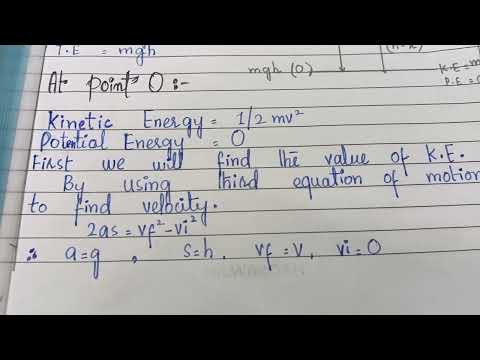 T.E = mgh
mgh (0)
(h-x)
K.E = m
P.E =
At point O :-
Kinetic Energy = 1/2 mv²
Potential Energy = 0
First we will find the value of K.E.
By using third equation of motion
to find velocity.
2as = vf² - vi²
∴ a=g , s=h , vf = v , vi = 0